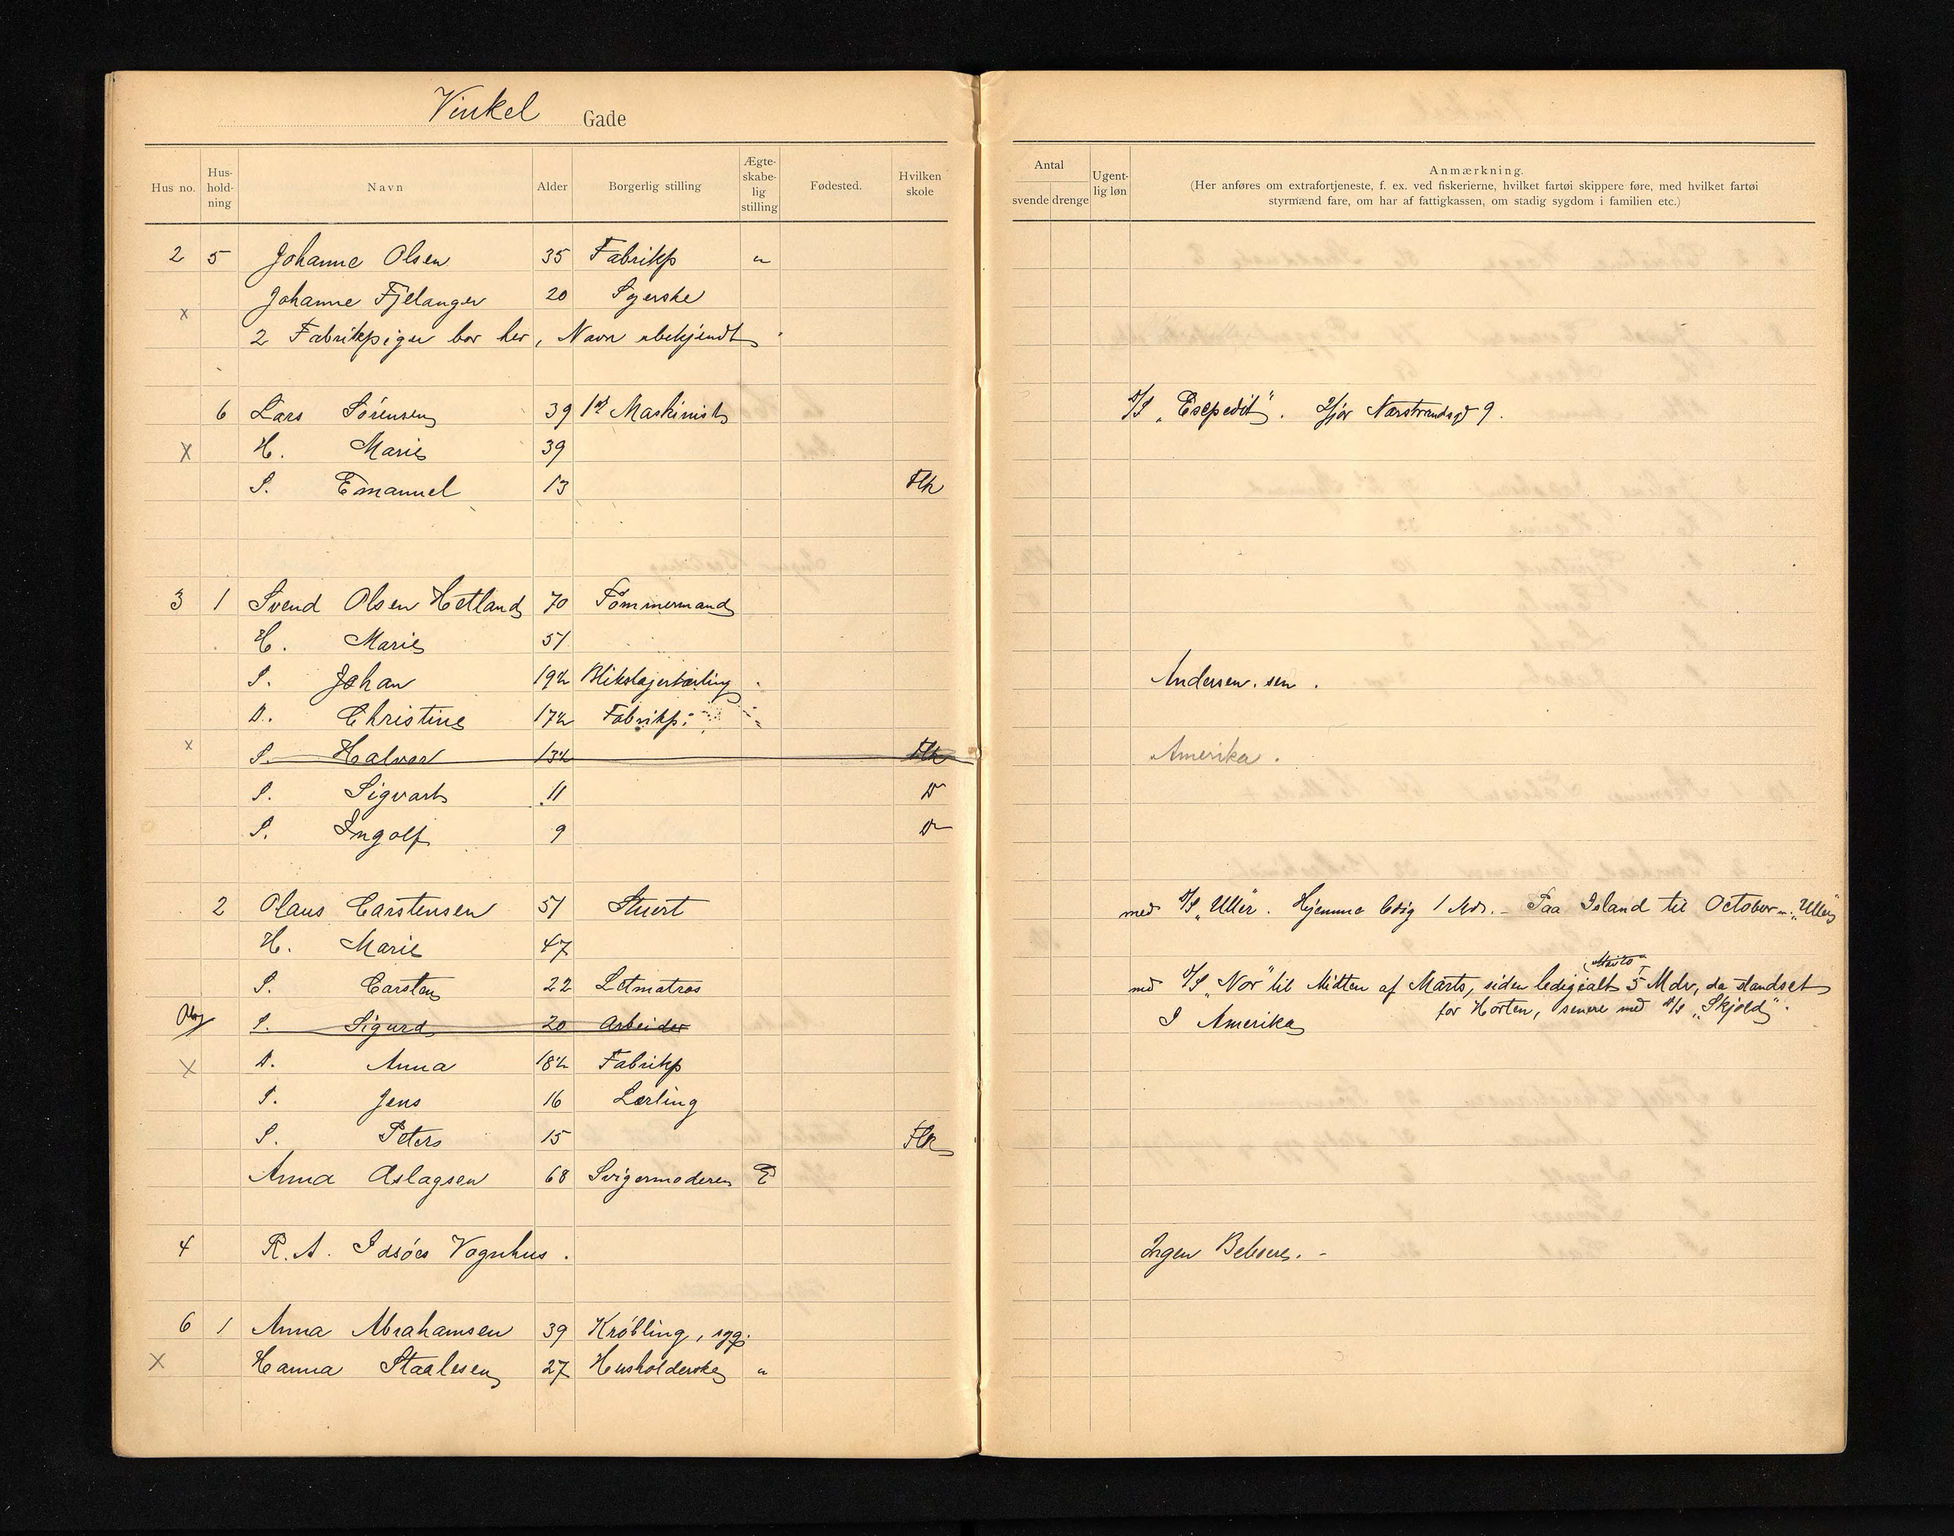 Vinkel Gade
Hus no. Hus-hold-ning Navn Alder Borgerlig stilling Ægte-skabe-lig stilling Fødested. Hvilken skole Antal svende drenge Ugent-lig løn Anmærkning.
(Her anføres om extrafortjeneste, f. ex. ved fiskerierne, hvilket fartøi skippere føre, med hvilket fartøi
styrmænd fare, om har af fattigkassen, om stadig sygdom i familien etc.)
2 5 Johanne Olsen 35 Fabrikp "
x Johanne Fjelanger 20 Syerske
2 Fabrikpiger bor her, Navn ubekjendt
6 Lars Sørensen 39 1st Maskinist S/S "Expedit". Ifjor Narstrandsgd 9.
x H. Marie 39
S. Emanuel 13 Flk
3 1 Svend Olsen Hetland 70 Tømmermand
H. Marie 51
S. Johan 19½ Blikslagerlærling Andersen. sen.
D. Christine 17½ Fabrikp.
x S. Halvor 13½ Flk Amerika.
S. Sigvart 11 D
S. Ingolf 9 D
2 Olaus Carstensen 51 Stuert med S/S "Uller". Hjemme ledig 1 Mdr. - Paa Island til October m. "Uller"
H. Marie 47
S. Carsten 22 Letmatros med S/S "Nor" til Midten af Marts, siden ledig ialt 5 Mdr, da standset
for Horten, senere med S/S "Skjold".
S. Sigurd 20 Arbeider I Amerika
x D. Anna 18½ Fabrikp
S. Jens 16 Lærling
S. Peter 15 Flk
Anna Aslagsen 68 Svigermoderen E
4 R. A. Idsøes Vognhus. Ingen Beboere. -
6 1 Anna Abrahamsen 39 Krøbling, syg.
x Hanna Staalesen 27 Husholderske "